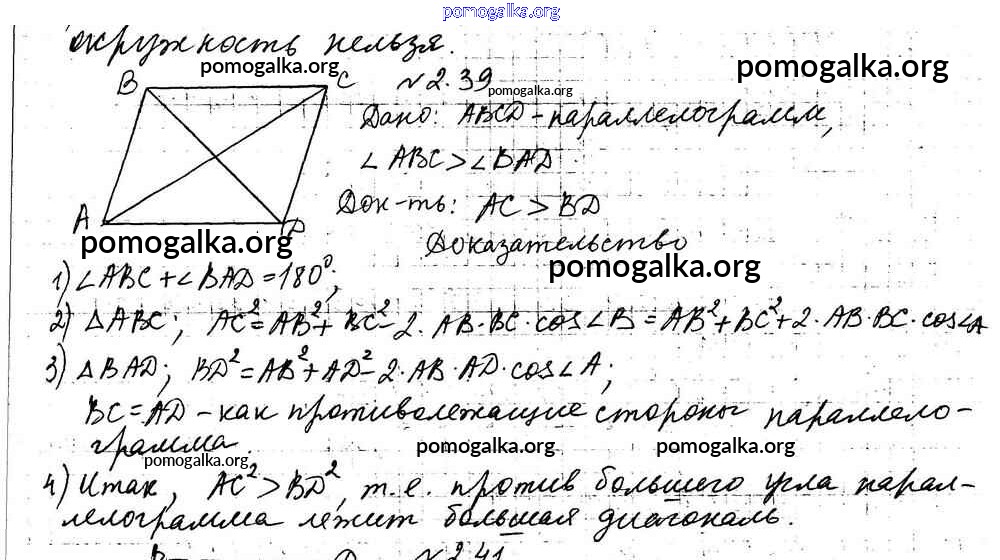 pomogalka.org
окружность нельзя.
pomogalka.org
B C №2.39
pomogalka.org
pomogalka.org
Дано: ABCD - параллелограмм,
∠ABC > ∠BAD
Док-ть: AC > BD
A D
pomogalka.org
Доказательство
pomogalka.org
1) ∠ABC + ∠BAD = 180°;
2) △ABC; AC² = AB² + BC² - 2·AB·BC·cos∠B = AB² + BC² + 2·AB·BC·cos∠A
3) △BAD; BD² = AB² + AD² - 2·AB·AD·cos∠A;
BC = AD - как противолежащие стороны параллело-
грамма.
pomogalka.org
pomogalka.org
pomogalka.org
4) Итак, AC² > BD², т.е. против большего угла парал-
лелограмма лежит большая диагональ.
№2.41